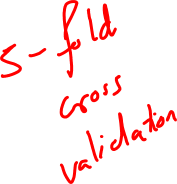 5-fold
cross
validation